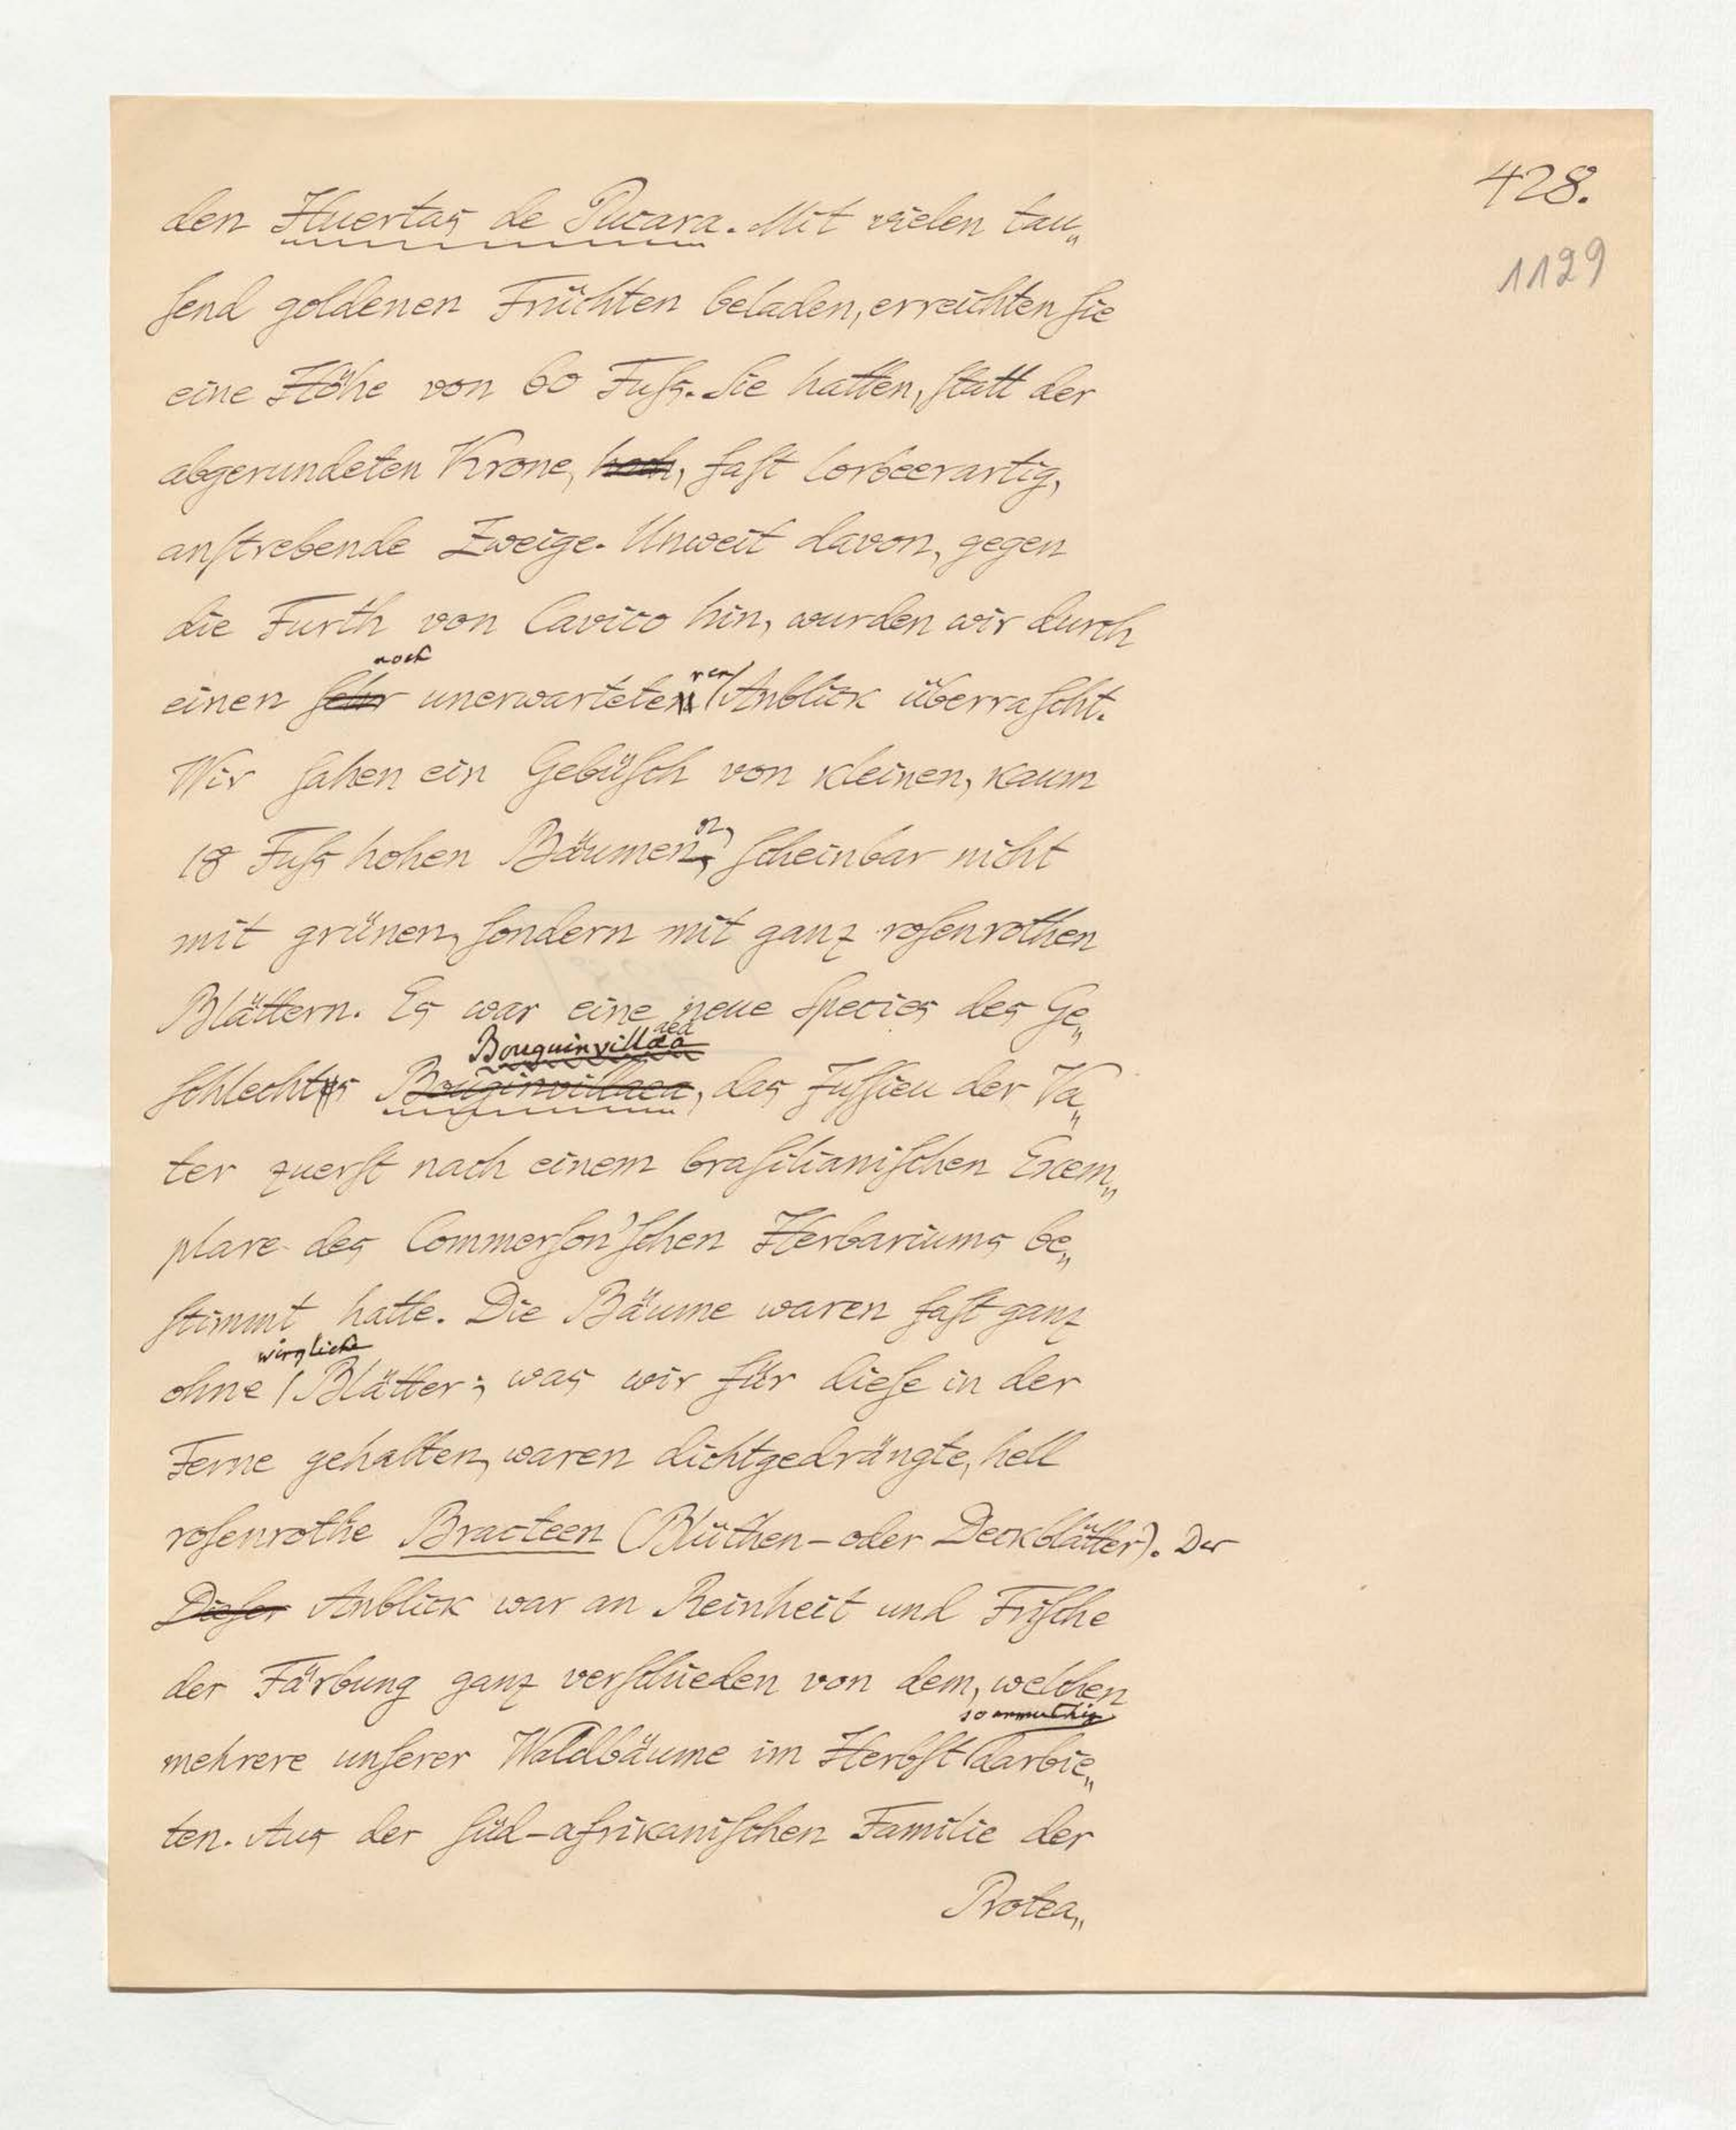 428.
1129
den Huertas de Pucara. Mit vielen tau„
ſend goldenen Früchten beladen, erreichten ſie
eine Höhe von 60 Fuſs. Sie hatten, ſtatt der
abgerundeten Krone, hoch, faſt lorbeerartig,
anſtrebende Zweige. Unweit davon, gegen
die Furth von Cavico hin, wurden wir durch
noch
ren
einen ſehr unerwarteten Anblick überraſcht.
Wir ſahen ein Gebüſch von kleinen, kaum
18 Fuſs hohen Bäumen, ſcheinbar nicht
mit grünen, ſondern mit ganz roſenrothen
Blättern. Es war eine neue Species des Ge„
Bouguinvillaea
ſchlechts Bouginvillaea, das Juſſieu der Va„
ter zuerſt nach einem braſilianiſchen Exem„
plare des Commerſon'ſchen Herbariums be„
ſtimmt hatte. Die Bäume waren faſt ganz
wirkliche
ohne Blätter; was wir für dieſe in der
Ferne gehalten, waren dichtgedrängte, hell
roſenrothe Bracteen (Blüthen-oder Deckblätter). Der
Dieſer Anblick war an Reinheit und Friſche
der Färbung ganz verſchieden von dem, welchen
so anmuthig
mehrere unſerer Waldbäume im Herbſt darbie„
ten. Aus der ſüd-afrikaniſchen Familie der
Protea„